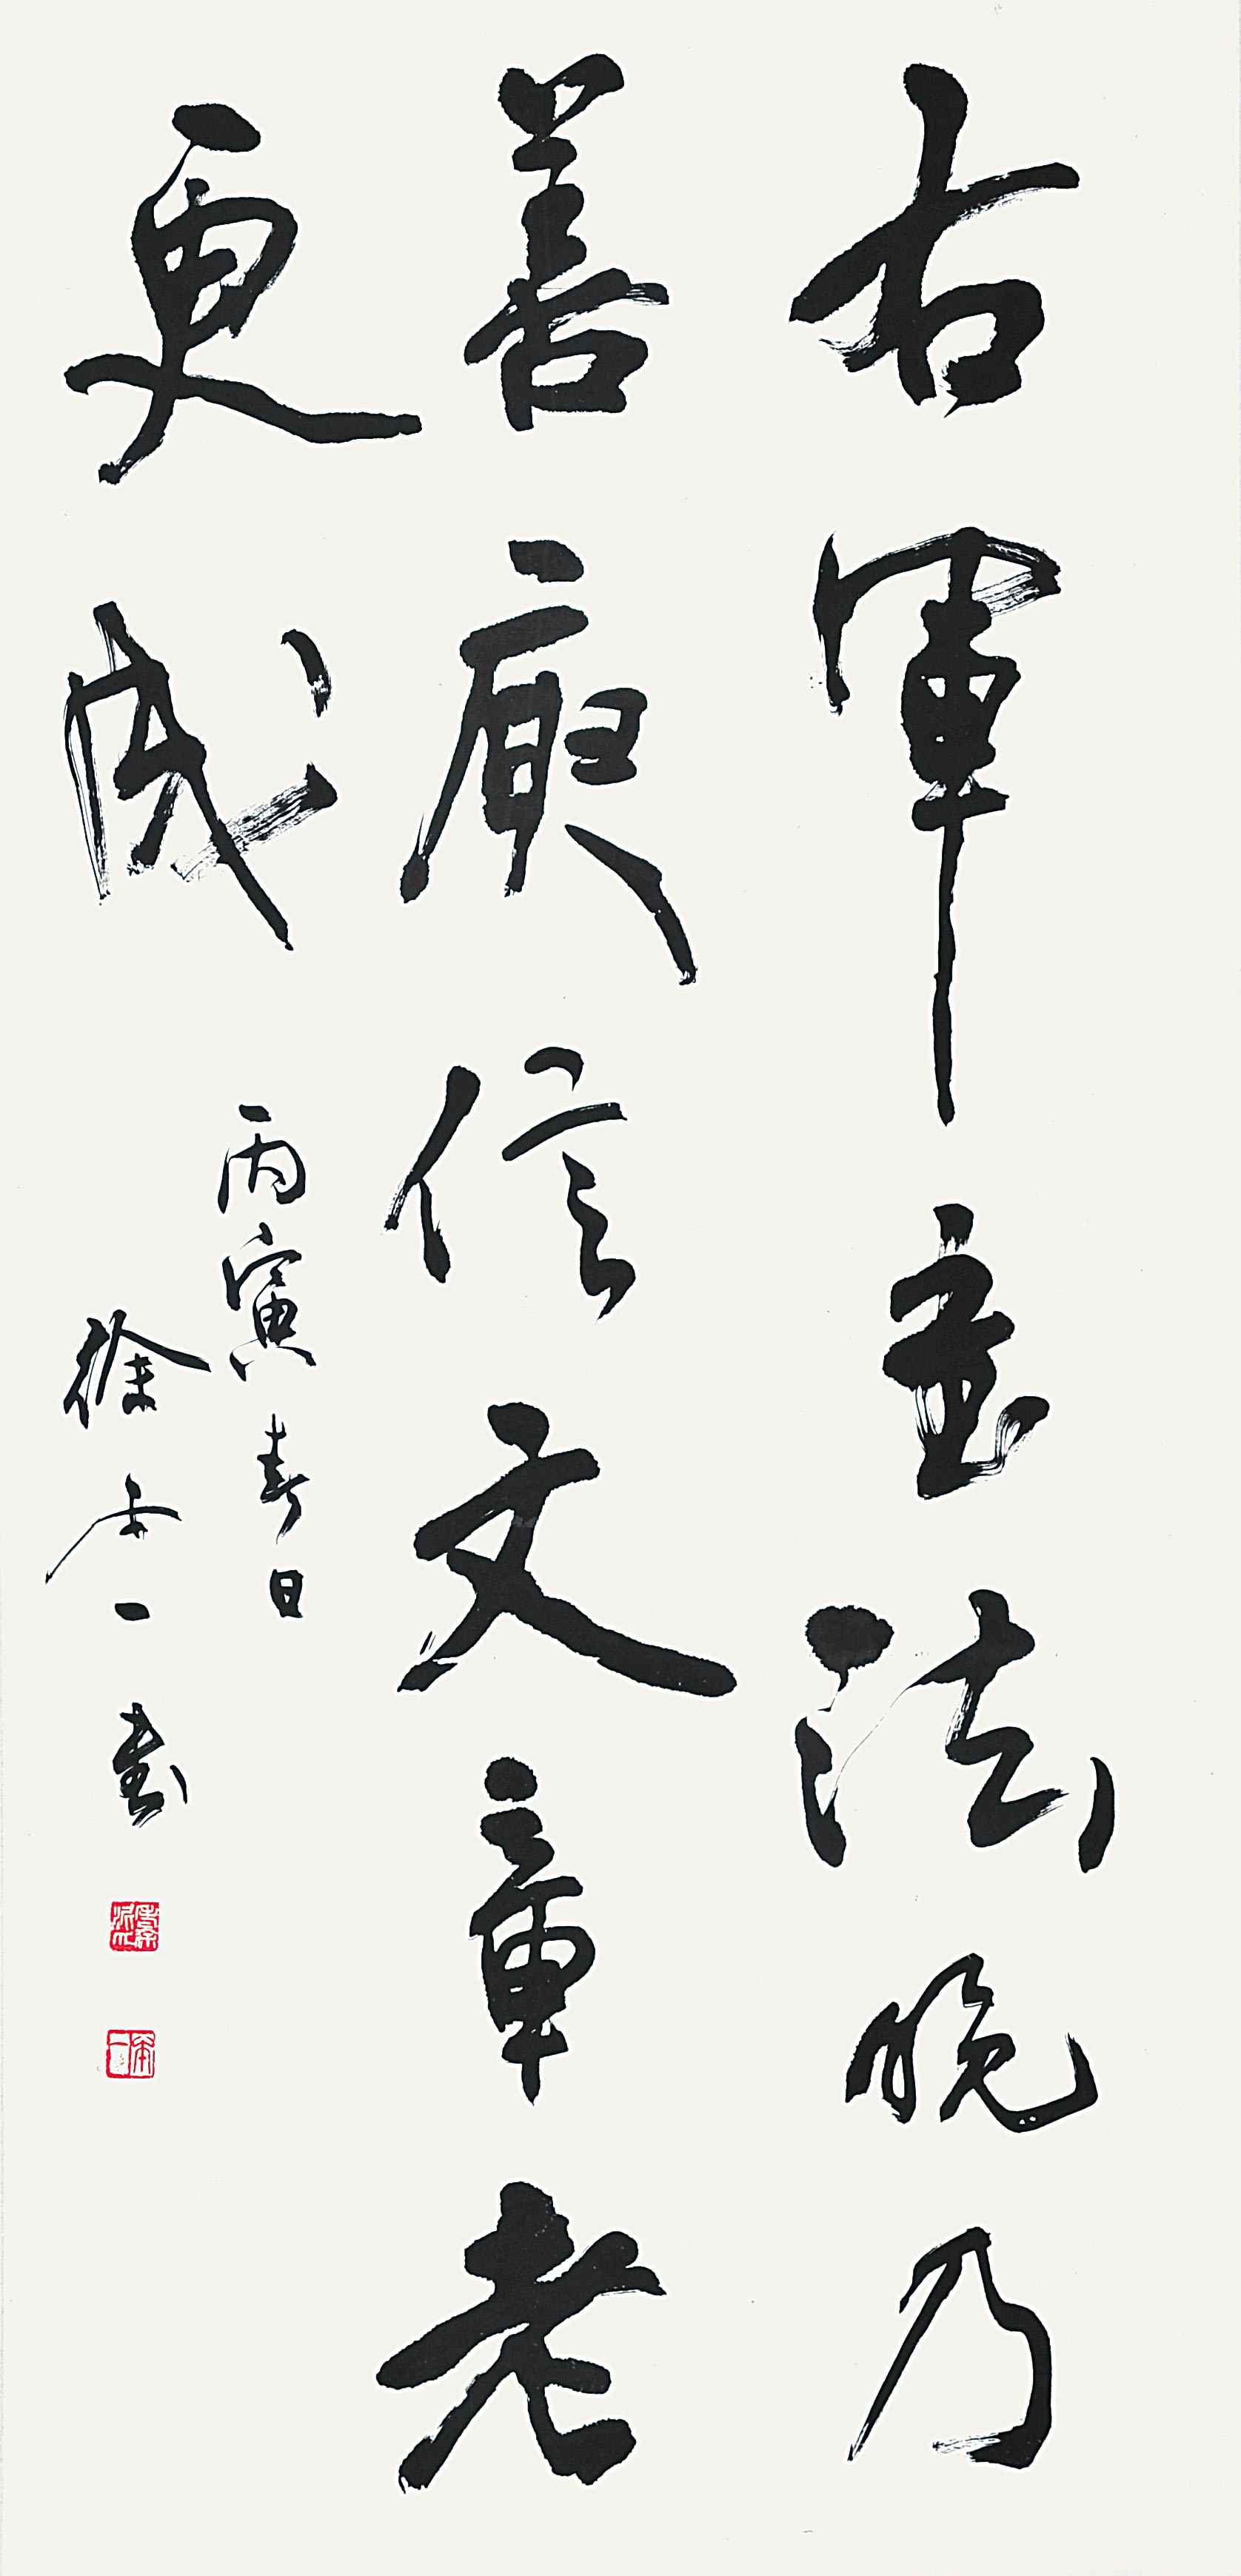 右军书法晚乃
善庾信文章老
更成
丙寅春日
徐本一书